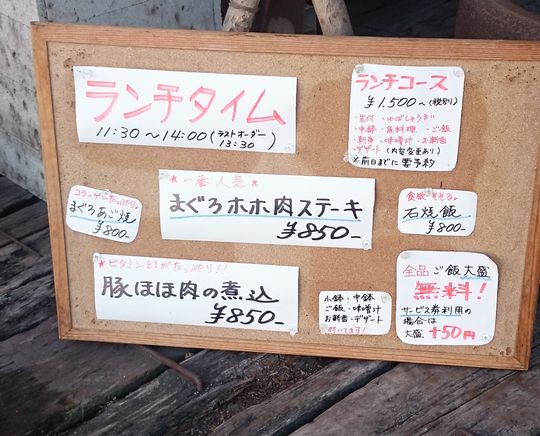 ランチタイム
11:30～14:00(ラストオーダー
13:30)
ランチコース
¥1.500～(税別)
・先付・ゆばしゅうまい
・中鉢・魚料理・ご飯
・刺身・味噌汁・お新香
・デザート(内容変更あり)
※前日までに要予約
コラーゲンたっぷり。
まぐろあご焼
¥800-
★一番人気★
まぐろホホ肉ステーキ
¥850-
食感そそる。
石焼飯
¥800-
★ビタミンB1がたっぷり!!
豚ほほ肉の煮込
¥850-
小鉢・中鉢
ご飯・味噌汁
お新香・デザート
付いてます!
全品ご飯大盛
無料!
サービス券利用の
場合は
大盛+50円